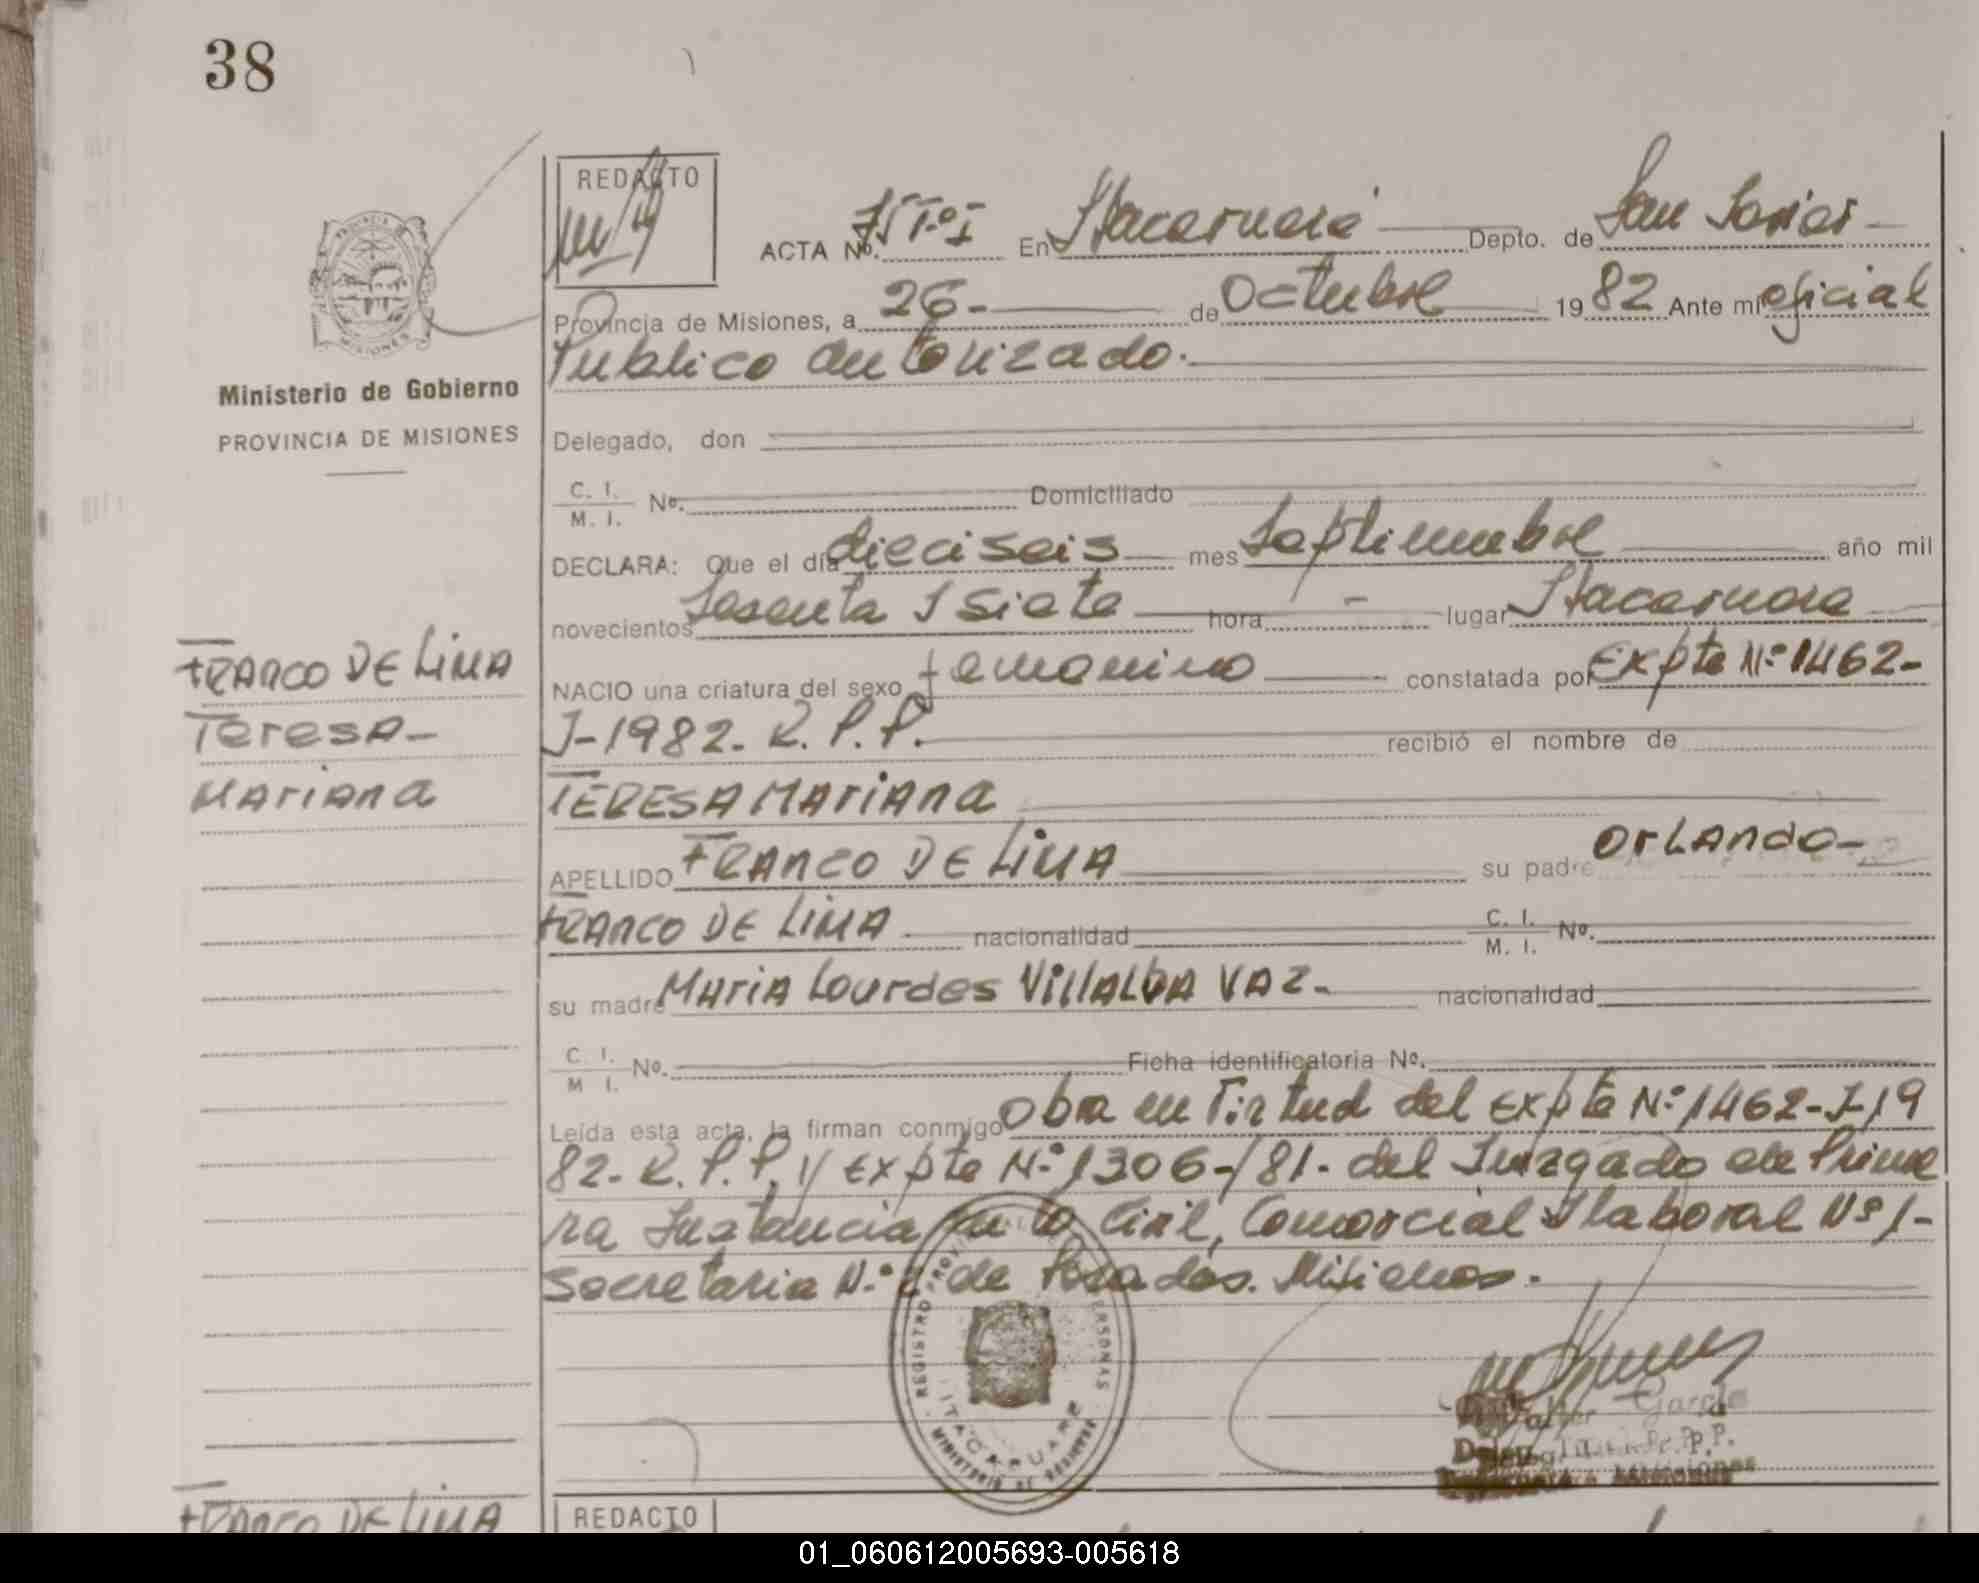 38
REDACTO
ACTA No. En Itacaruaré Depto. de San Javier
Provincia de Misiones, a 26- de Octubre 1982 Ante mi oficial
Publico autorizado.
PROVINCIA
MISIONES
Ministerio de Gobierno
PROVINCIA DE MISIONES
Delegado, don
C. I.
M. I. No. Domiciliado
DECLARA: Que el día dieciseis mes Septiembre año mil
novecientos sesenta y siete hora - lugar Itacaruare
FRANCO DE LiMA
NACIO una criatura del sexo femenino constatada por Expte Nº 1462-
Teresa-
I-1982. R. P. P. recibió el nombre de
Mariana
TERESA MAriAna
APELLIDO FRAnco DE LiMA su padre OrLando-
FRAnco DE LiMA nacionalidad C. I.
M. I. No.
su madre MAriA Lourdes VillALbA VAZ- nacionalidad
C. I.
M I. No. Ficha identificatoria No.
Leída esta acta, la firman conmigo obra en Virtud del Expte Nº 1462-I-19
82- R. P. P. y Expte Nº 1306-/81- del Juzgado de Prime
ra Instancia en lo Civil, Comercial y laboral Nº 1-
Secretaria N.º de Posadas. Misiones.
REGISTRO PROVINCIAL PERSONAS
ITACARUARE
Walter García
R. P. P.
Misiones
FRAnco DE LiMA
REDACTO
01_060612005693-005618